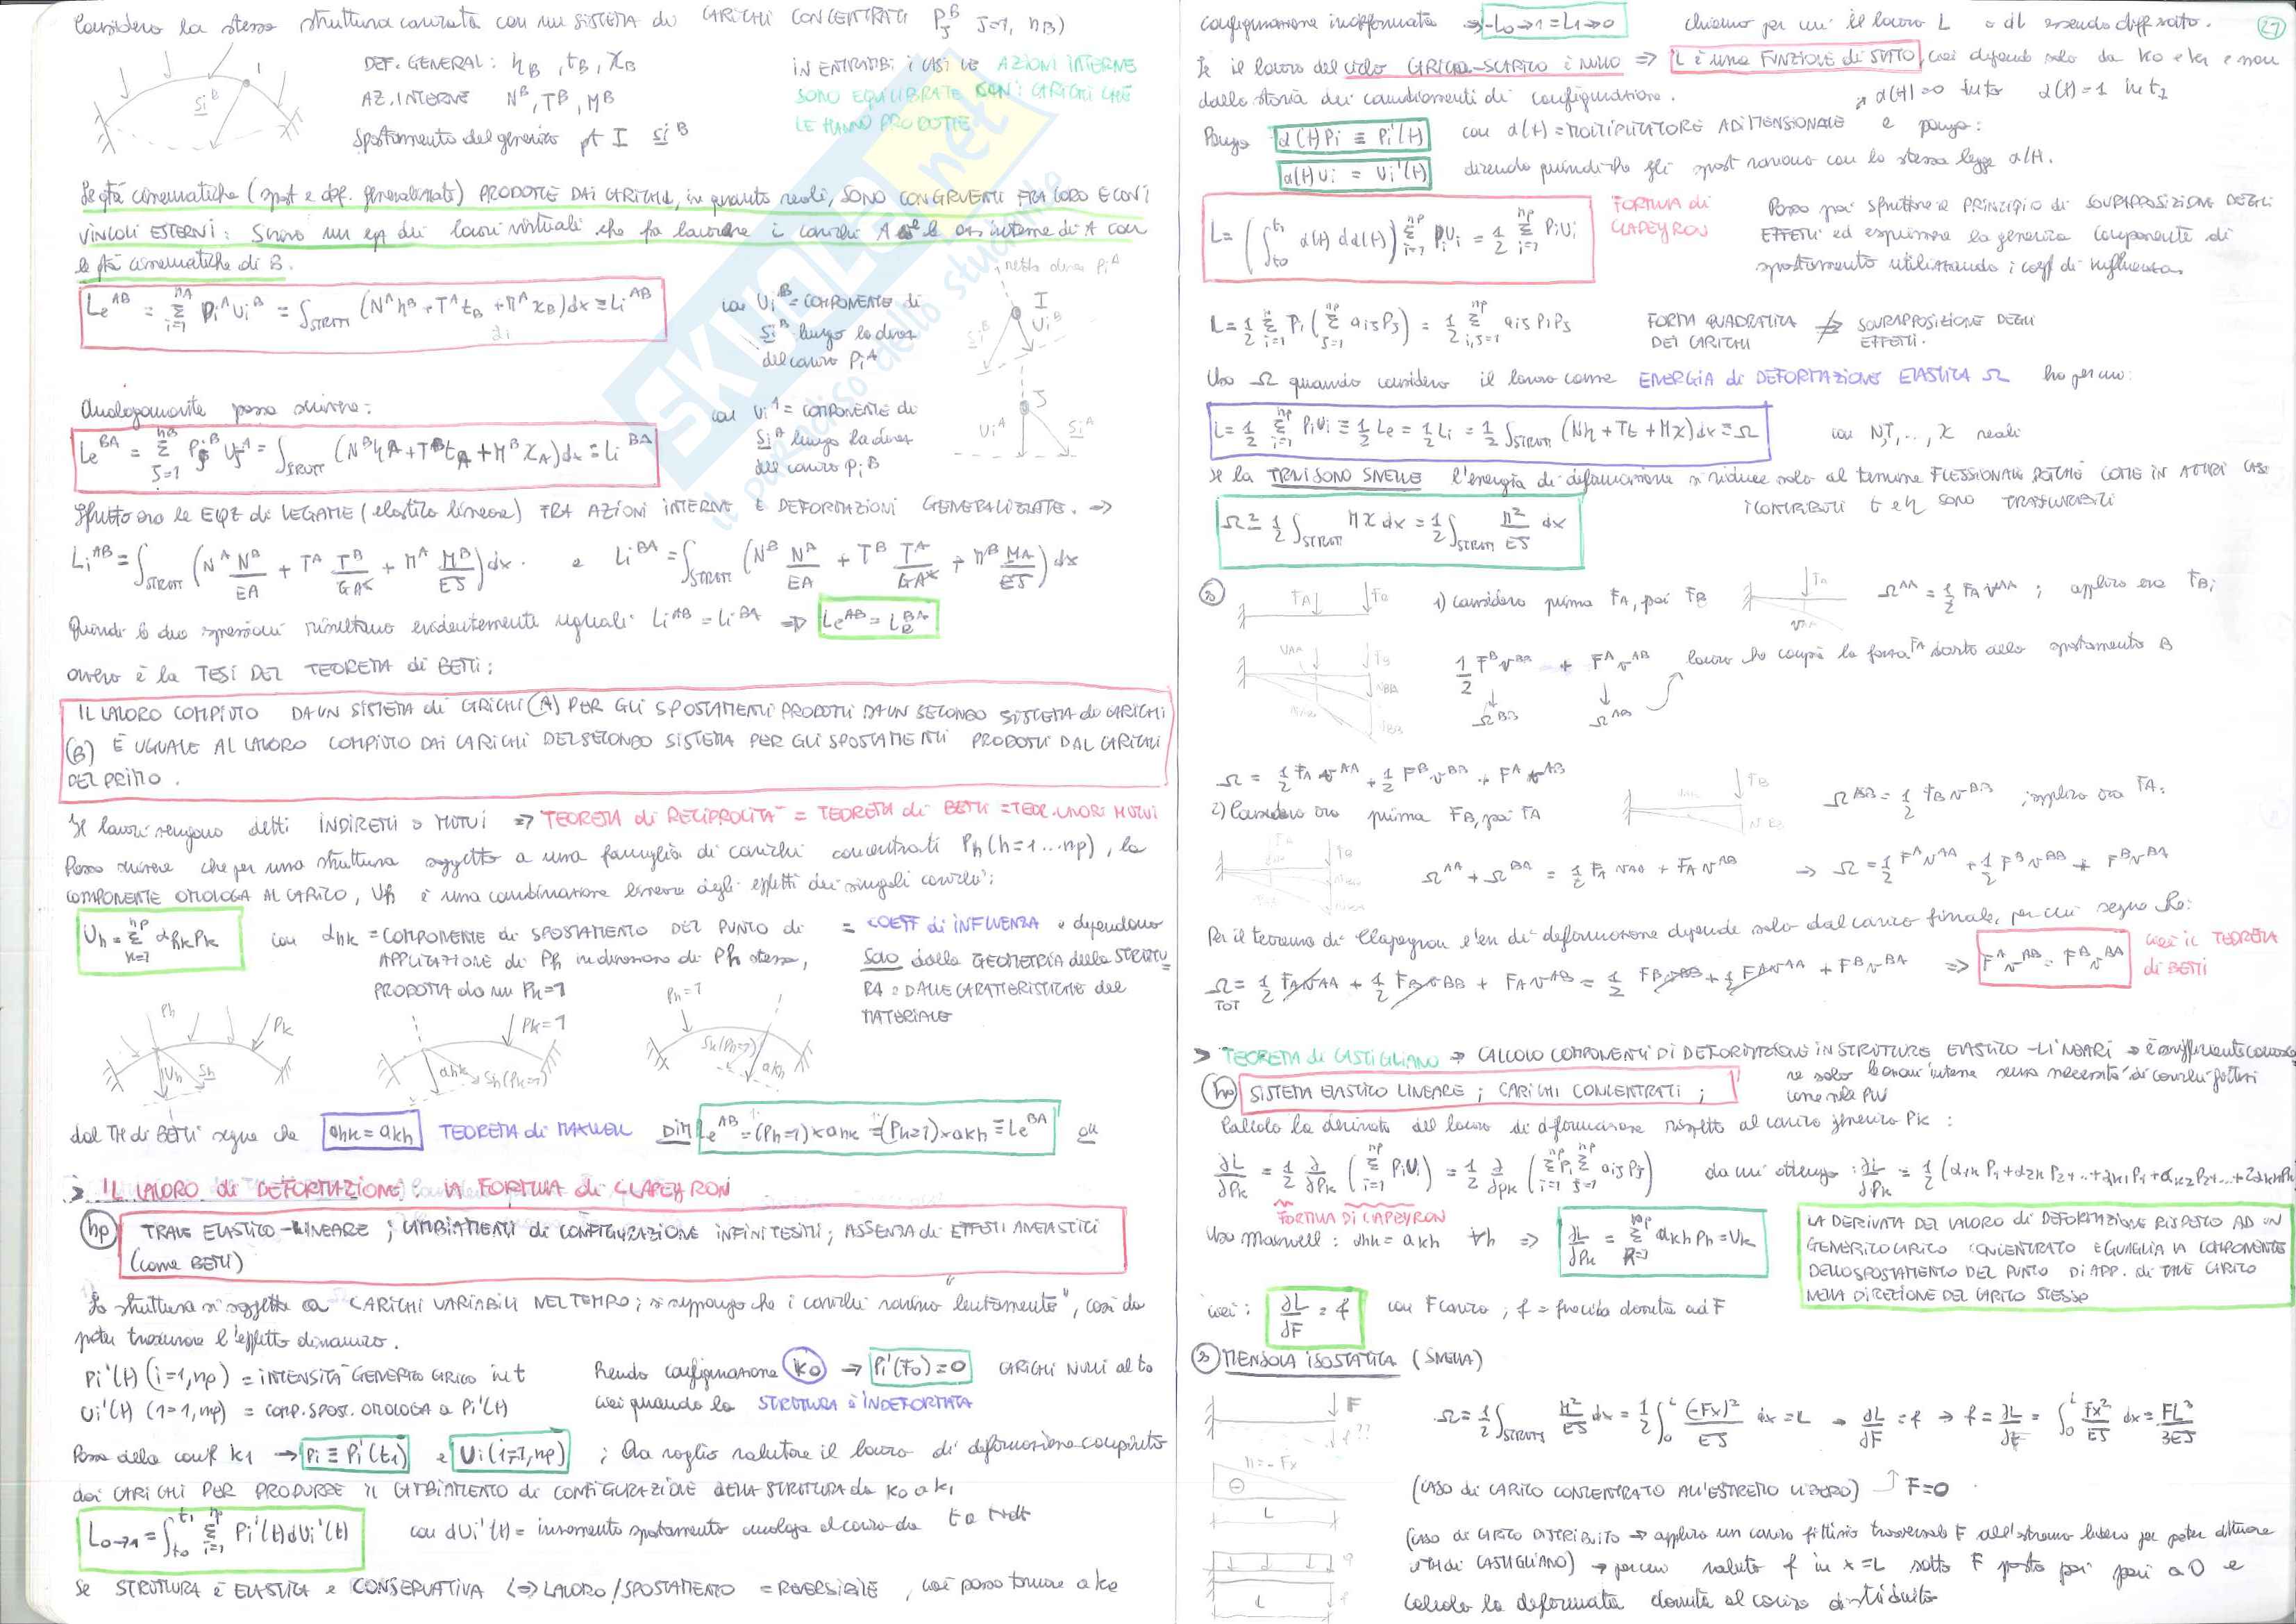 Considero la stessa struttura caricata con un SISTEMA di CARICHI CONCENTRATI Pⱼᴮ J=1, nB)
DEF. GENERAL: ηB, tB, χB
AZ. INTERNE Nᴮ, Tᴮ, Mᴮ
Spostamento del generico pt I siᴮ
IN ENTRAMBI I CASI LE AZIONI INTERNE
SONO EQUILIBRATE CON i CARICHI CHE
LE HANNO PRODOTTE
Le qtà cinematiche (spost e def. generalizzate) PRODOTTE DAI CARICHI, in quanto reali, SONO CONGRUENTI FRA LORO E CON I
VINCOLI ESTERNI: Scrivo un eq dei lavori virtuali che fa lavorare i carichi A e le az interne di A con
le qtà cinematiche di B.
Leᴬᴮ = Σ Piᴬ Uiᴮ = ∫STRUTT (Nᴬ ηB + Tᴬ tB + Mᴬ χB) dx ≡ Liᴬᴮ
con Uiᴮ = COMPONENTE di
siᴮ lungo la direz
del carico Piᴬ
Analogamente posso scrivere:
Leᴮᴬ = Σ Pjᴮ Ujᴬ = ∫STRUTT (Nᴮ ηA + Tᴮ tA + Mᴮ χA) dx ≡ Liᴮᴬ
con Uiᴬ = COMPONENTE di
siᴬ lungo la direz
del carico Piᴮ
Sfrutto ora le EQZ di LEGAME (elastico lineare) TRA AZIONI INTERNE E DEFORMAZIONI GENERALIZZATE. ⇒
Liᴬᴮ = ∫STRUTT (Nᴬ Nᴮ/EA + Tᴬ Tᴮ/GA* + Mᴬ Mᴮ/EJ) dx. e Liᴮᴬ = ∫STRUTT (Nᴮ Nᴬ/EA + Tᴮ Tᴬ/GA* + Mᴮ MA/EJ) dx
Quindi le due espressioni risultano evidentemente uguali: Liᴬᴮ = Liᴮᴬ ⇒ Leᴬᴮ = Leᴮᴬ
ovvero è la TESI DEL TEOREMA di BETTI:
IL LAVORO COMPIUTO DA UN SISTEMA di CARICHI (A) PER GLI SPOSTAMENTI PRODOTTI DA UN SECONDO SISTEMA di CARICHI
(B) È UGUALE AL LAVORO COMPIUTO DAI CARICHI DEL SECONDO SISTEMA PER GLI SPOSTAMENTI PRODOTTI DAI CARICHI
DEL PRIMO.
I lavori vengono detti INDIRETTI o MUTUI ⇒ TEOREMA di RECIPROCITÀ = TEOREMA di BETTI = TEOR. LAVORI MUTUI
Posso scrivere che per una struttura soggetta a una famiglia di carichi concentrati Ph (h=1...np), la
COMPONENTE OMOLOGA AL CARICO, Uh è una combinazione lineare degli effetti dei singoli carichi:
Uh = Σ ahk Pk
con ahk = COMPONENTE di SPOSTAMENTO DEL PUNTO di
APPLICAZIONE di Ph in direzione di Ph stesso,
PRODOTTA da un Pk=1
= COEFF di INFLUENZA e dipendono
SOLO dalla GEOMETRIA della STRUTTU
RA e DALLE CARATTERISTICHE del
MATERIALE
dal TH di BETTI segue che ahk = akh TEOREMA di MAXWELL DIM Leᴬᴮ = (Ph=1) × ahk = (Pk=1) × akh ≡ Leᴮᴬ
> IL LAVORO di DEFORMAZIONE: LA FORMULA di CLAPEYRON
hp TRAVE ELASTICO-LINEARE; CAMBIAMENTI di CONFIGURAZIONE INFINITESIMI; ASSENZA di EFFETTI ANELASTICI
(come BETTI)
La struttura si soggetta a CARICHI VARIABILI NEL TEMPO; si suppongo che i carichi variano "lentamente", così da
poter trascurare l'effetto dinamico.
Pi'(t) (i=1,np) = INTENSITÀ GENERICO CARICO in t
Ui'(t) (i=1,np) = COMP. SPOST. OMOLOGA a Pi'(t)
Prendo configurazione K0 → Pi'(t0)=0 CARICHI NULLI al t0
cioè quando la STRUTTURA è INDEFORMATA
Passo alla conf K1 → Pi ≡ Pi'(t1) e Ui (i=1,np) ; Ora voglio valutare il lavoro di deformazione compiuto
dai CARICHI PER PRODURRE IL CAMBIAMENTO di CONFIGURAZIONE DELLA STRUTTURA da K0 a K1
L0→1 = ∫t0 t1 Σ Pi'(t) dUi'(t) con dUi'(t) = incremento spostamento omologo al carico da t a t+dt
SE STRUTTURA È ELASTICA e CONSERVATIVA ⇔ LAVORO/SPOSTAMENTO = REVERSIBILE, cioè posso tornare a K0
configurazione indeformata ⇒ -L0→1 = L1→0 chiamo per cui il lavoro L o di essendo
27
Se il lavoro del ciclo CARICO-SCARICO è NULLO ⇒ L è una FUNZIONE di STATO, cioè dipende solo da K0 e K1 e non
dalla storia dei cambiamenti di configurazione. α(t)=0 in t0 α(t)=1 in t1
Pongo α(t) Pi ≡ Pi'(t) con α(t) = MOLTIPLICATORE ADIMENSIONALE e pongo:
α(t) Ui = Ui'(t) dicendo quindi che gli spost variano con la stessa legge α(t).
L = (∫t0 t1 α(t) dα(t)) Σ Pi Ui = 1/2 Σ Pi Ui
FORMULA di
CLAPEYRON
Posso poi sfruttare il PRINCIPIO di SOVRAPPOSIZIONE DEGLI
EFFETTI ed esprimere la generica componente di
spostamento utilizzando i coef di influenza
L = 1/2 Σ Pi (Σ aij Pj) = 1/2 Σ aij Pi Pj
FORMA QUADRATICA
DEI CARICHI
⇏ SOVRAPPOSIZIONE DEGLI
EFFETTI.
Uso Ω quando considero il lavoro come ENERGIA di DEFORMAZIONE ELASTICA Ω ho per cui:
L = 1/2 Σ Pi Ui ≡ 1/2 Le = 1/2 Li = 1/2 ∫STRUTT (Nη + Tt + Mχ) dx ≡ Ω con N,T,..., χ reali
Se la TRAVI SONO SNELLE l'energia di deformazione si riduce solo al termine FLESSIONALE POICHÉ COME IN ALTRI CASI
I CONTRIBUTI t e η SONO TRASCURABILI
Ω ≅ 1/2 ∫STRUTT Mχ dx = 1/2 ∫STRUTT M²/EJ dx
1) Considero prima FA, poi FB
Ωᴬᴬ = 1/2 FA vᴬᴬ ; applico ora FB;
1/2 Fᴮ vᴮᴮ + Fᴬ vᴬᴮ lavoro che compie la forza FA dovuto allo spostamento B
Ωᴮᴮ Ωᴬᴮ
Ω = 1/2 FA vᴬᴬ + 1/2 Fᴮ vᴮᴮ + Fᴬ vᴬᴮ
2) Considero ora prima FB, poi FA
Ωᴮᴮ = 1/2 FB vᴮᴮ ; applico ora FA:
Ωᴬᴬ + Ωᴮᴬ = 1/2 FA vAA + FA vᴬᴮ → Ω = 1/2 Fᴬ vᴬᴬ + 1/2 Fᴮ vᴮᴮ + Fᴮ vᴮᴬ
Per il teorema di Clapeyron l'en di deformazione dipende solo dal carico finale, per cui segue che:
ΩTOT = 1/2 FA vAA + 1/2 FB vBB + FA vᴬᴮ = 1/2 FB vBB + 1/2 FA vᴬᴬ + Fᴮ vᴮᴬ ⇒ Fᴬ vᴬᴮ = Fᴮ vᴮᴬ
cioè il TEOREMA
di BETTI
> TEOREMA di CASTIGLIANO ⇒ CALCOLO COMPONENTI DI DEFORMAZIONE IN STRUTTURE ELASTICO-LINEARI → è sufficiente conosce
re solo le azioni interne senza necessità di carichi fittizi
come nel PLV
hp SISTEMA ELASTICO LINEARE; CARICHI CONCENTRATI;
Calcolo la derivata del lavoro di deformazione rispetto al carico generico Pk:
∂L/∂Pk = 1/2 ∂/∂Pk (Σ Pi Ui) = 1/2 ∂/∂Pk (Σ Pi Σ aij Pj) da cui ottengo: ∂L/∂Pk = 1/2 (a1k P1 + a2k P2 + .. + ak1 P1 + ak2 P2 + ... + 2akk Pk)
FORMULA DI CLAPEYRON
Uso Maxwell: ahk = akh ∀h ⇒ ∂L/∂Pk = Σ akh Ph = Uk
LA DERIVATA DEL LAVORO di DEFORMAZIONE RISPETTO AD UN
GENERICO CARICO CONCENTRATO EGUAGLIA LA COMPONENTE
DELLO SPOSTAMENTO DEL PUNTO DI APP. di TALE CARICO
NELLA DIREZIONE DEL CARICO STESSO
cioè: ∂L/∂F = f con F carico; f = freccia dovuta ad F
MENSOLA ISOSTATICA (SNELLA)
Ω = 1/2 ∫STRUTT M²/EJ dx = 1/2 ∫0 L (-Fx)²/EJ dx = L → ∂L/∂F = f → f = ∂L/∂F = ∫0 L Fx²/EJ dx = FL³/3EJ
M = -Fx
(CASO di CARICO CONCENTRATO ALL'ESTREMO LIBERO) F=0
(CASO di CARICO DISTRIBUITO → applico un carico fittizio trasversale F all'estremo libero per poter
TH di CASTIGLIANO) → valuto f in x=L sotto F posto poi pari a 0 e
calcolo la deformata dovuta al carico distribuito
SKUOLA.net
il paradiso dello studente